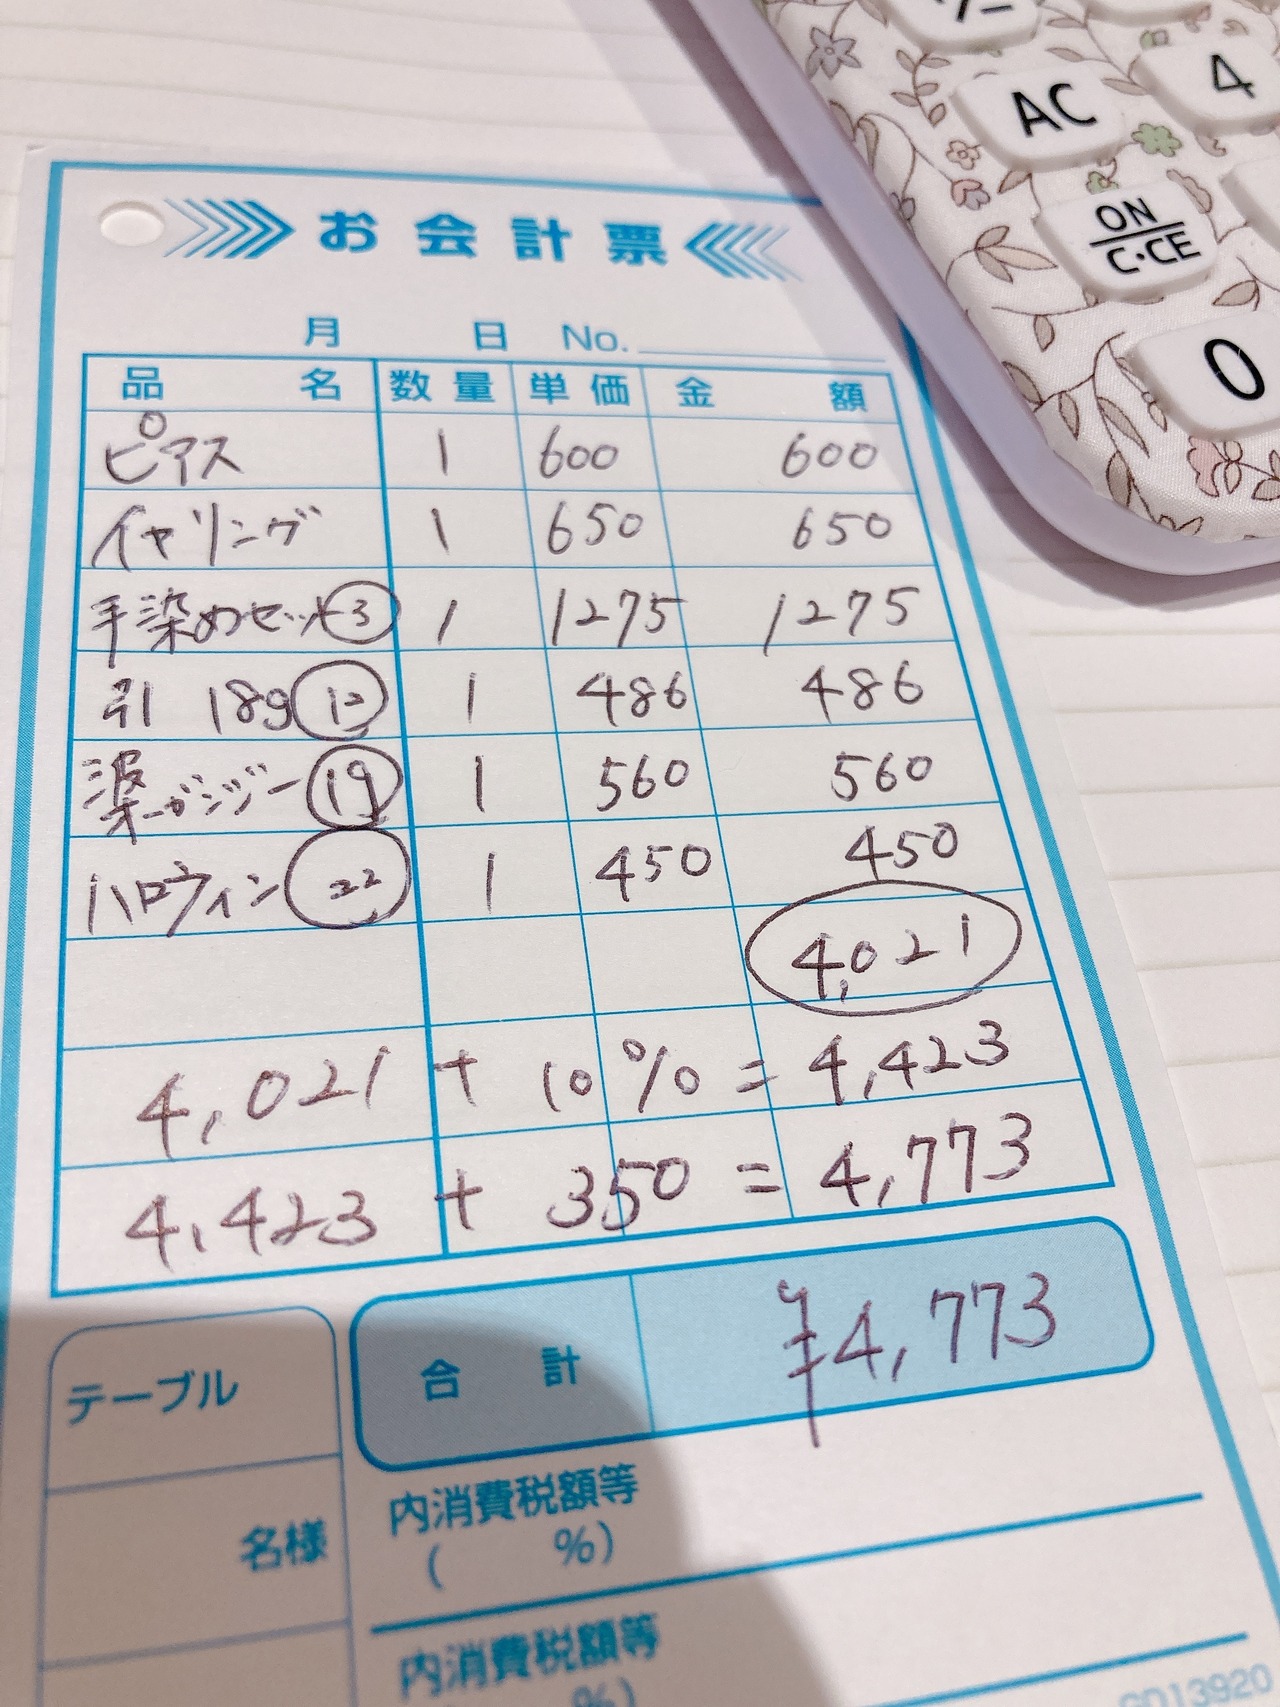 お会計票
月 日 No.
品名 数量 単価 金額
ピアス 1 600 600
イヤリング 1 650 650
手染めセット③ 1 1275 1275
引 18g⑫ 1 486 486
染ーガンジー⑲ 1 560 560
ハロウィン㉒ 1 450 450
4,021
4,021 + 10% = 4,423
4,423 + 350 = 4,773
合計 ¥4,773
テーブル
名様
内消費税額等
( %)
内消費税額等
%)
GD13920
AC
4
ON
C・CE
0